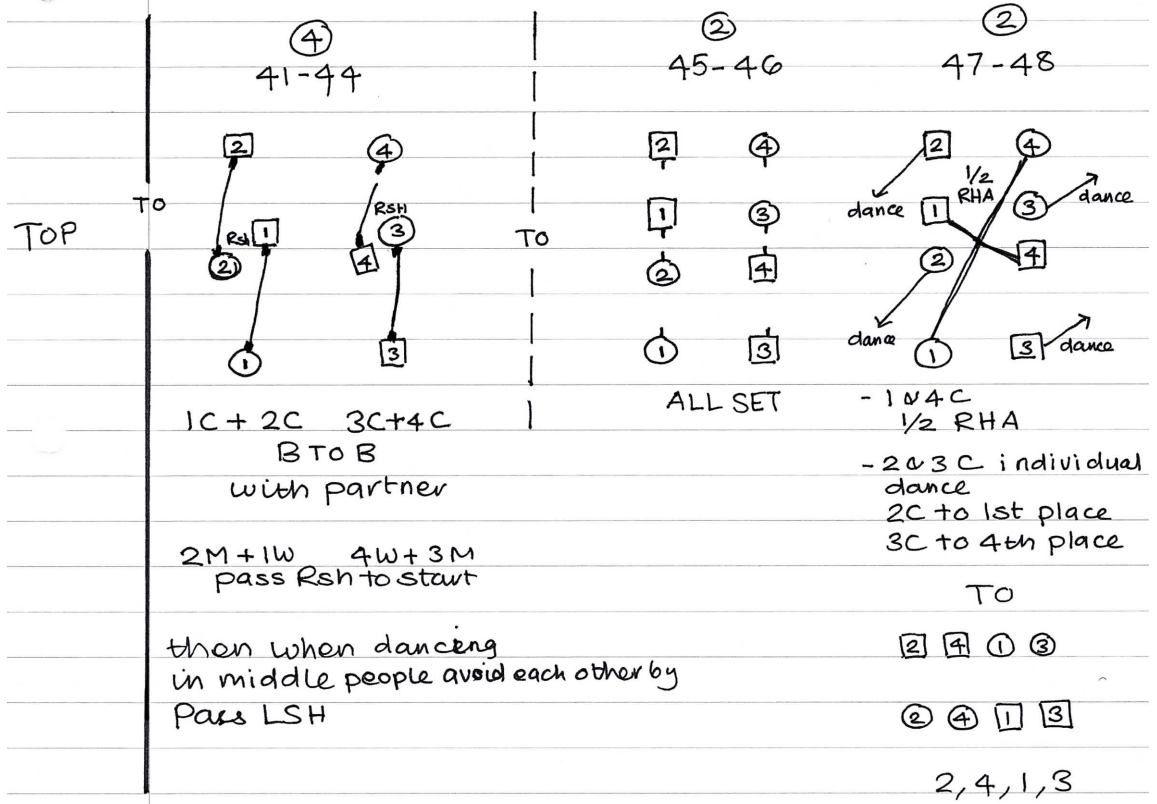 TOP
TO
④
41-44
2 4
Rsh 1 RSH 3
2 4
1 3
1C + 2C 3C+4C
B TO B
with partner
2M + 1W 4W + 3M
pass Rsh to start
then when dancing
in middle people avoid each other by
Pass LSH
TO
②
45-46
2 4
1 3
2 4
1 3
ALL SET
②
47-48
2 4
1/2
RHA
dance 1 3 dance
2 4
dance 1 3 dance
- 1 & 4 C
1/2 RHA
- 2 & 3 C individual
dance
2C to 1st place
3C to 4th place
TO
2 4 1 3
2 4 1 3
2, 4, 1, 3